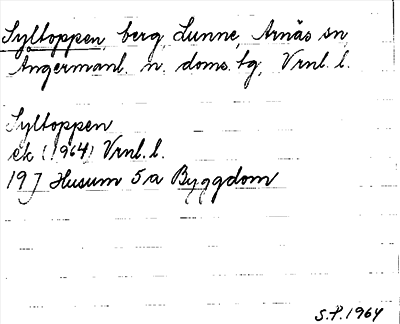 Syltoppen, berg, Lunne, Arnäs sn,
Ångermanl. n. doms. tg, Vrnl. l.
Syltoppen
ek (1964) Vrnl. l.
19 J Husum 5 a Byggdom
S.P. 1964